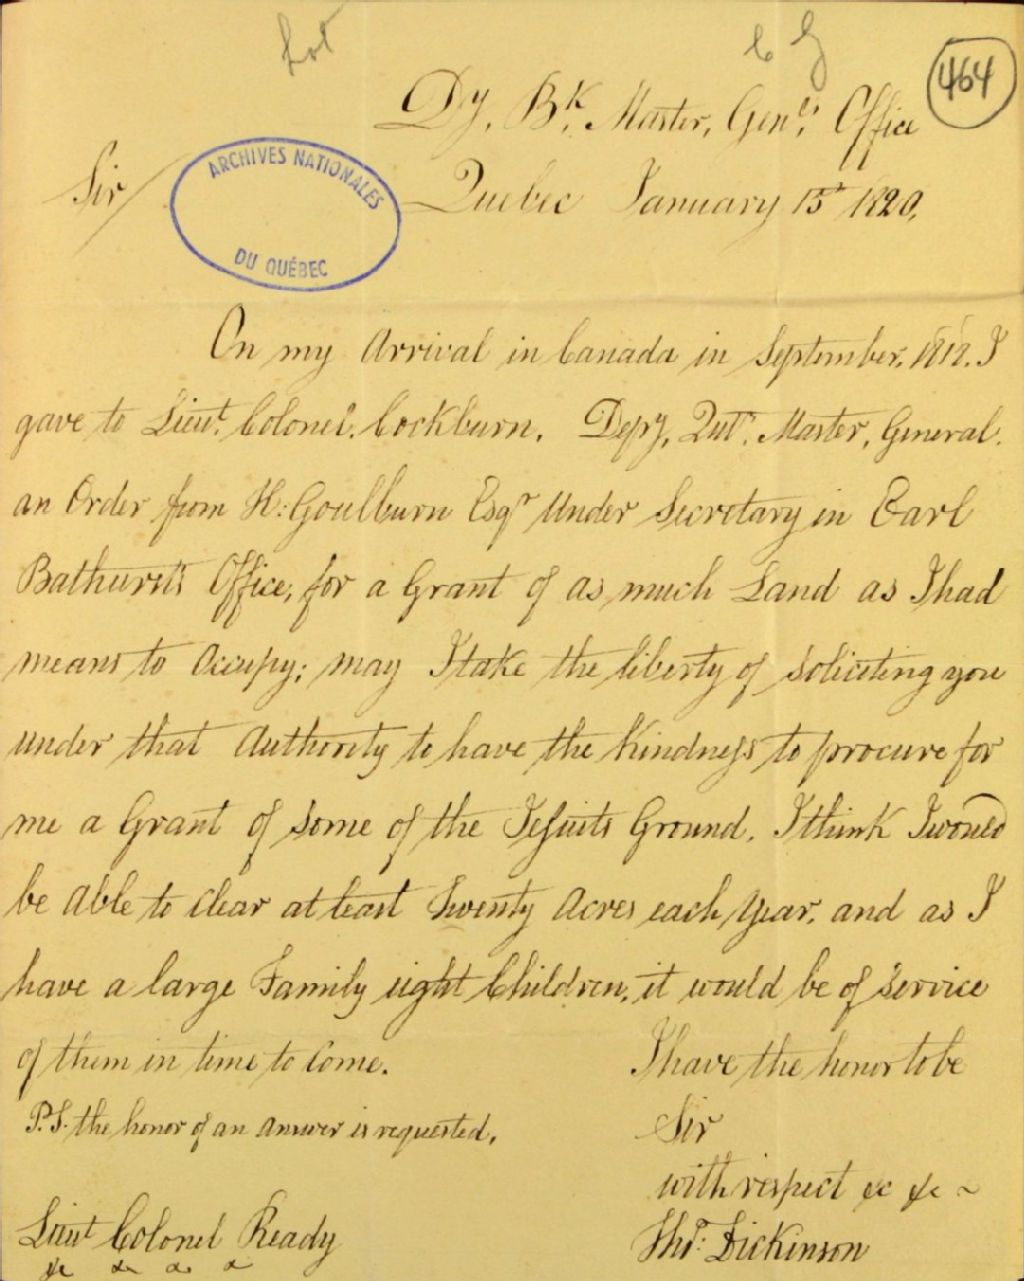 Lot
464
Dy. Bk. Master, Genls. Office
Sir/
ARCHIVES NATIONALES
DU QUÉBEC
Quebec January 15th 1820.
On my Arrival in Canada in September. I
gave to Lieut. Colonel. Cockburn. Depy. Qutr. Master, General.
an Order from H: Goulburn Esqr Under Secretary in Earl
Bathurst's Office, for a Grant of as much Land as I had
means to Occupy; may I take the liberty of Soliciting you
under that Authority to have the Kindness to procure for
me a Grant of some of the Jesuits Ground. I think I would
be able to clear at least Twenty Acres each Year. and as I
have a large Family eight Children, it would be of service
of them in time to Come.
I have the honor to be
P.S. the honor of an answer is requested.
Sir
with respect &c &c ~
Lieut Colonel Ready
Thos: Dickinson
&c